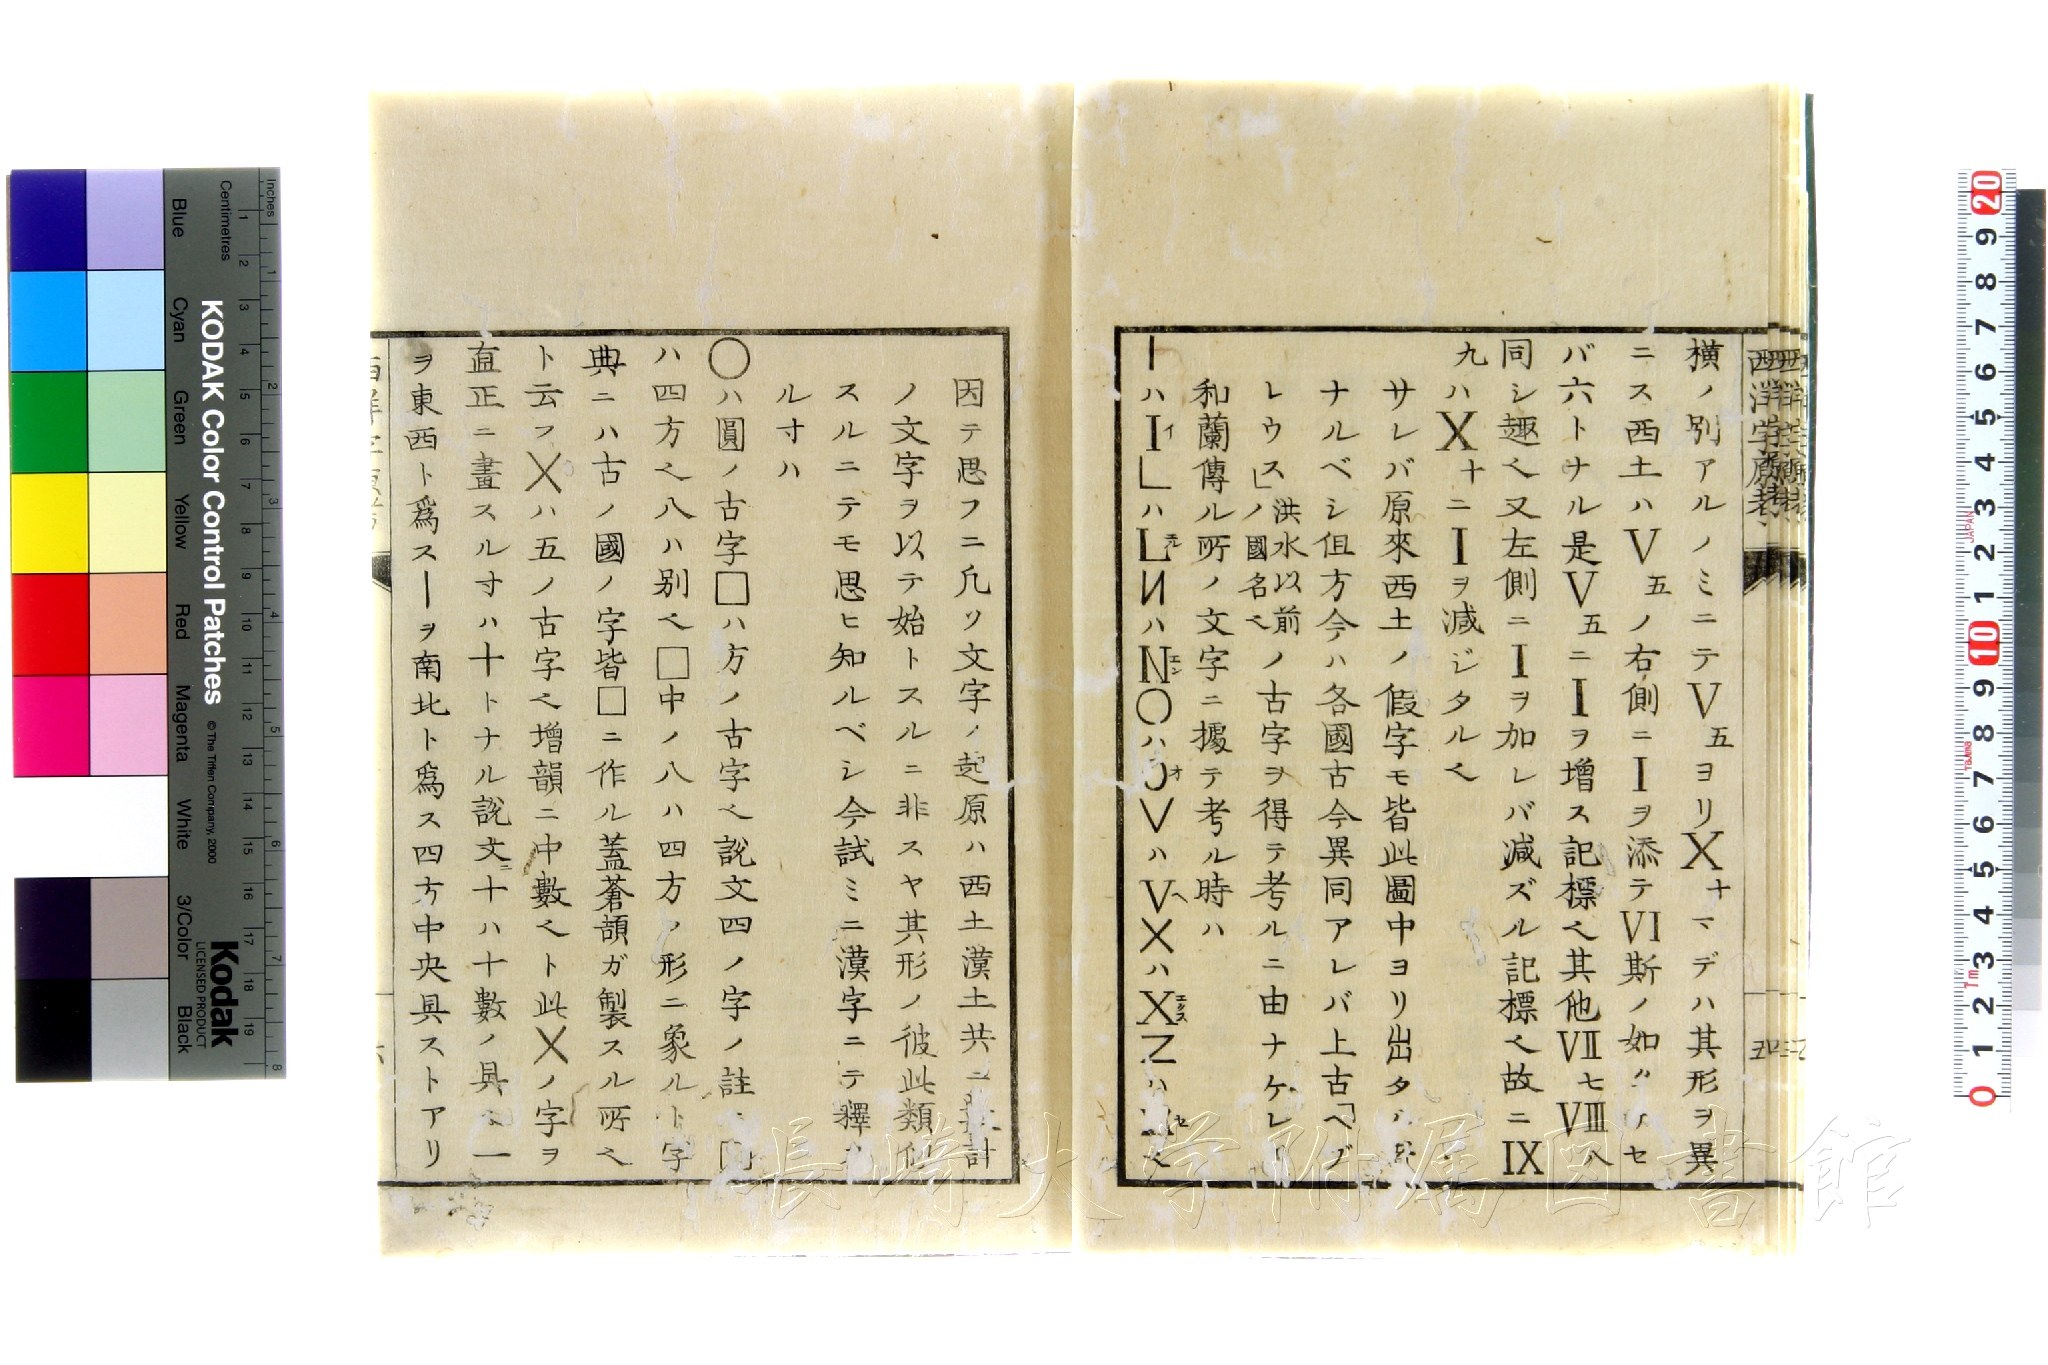 横ノ別アルノミニテV五ヨリX十マデハ其形ヲ異
ニス西土ハV五ノ右側ニIヲ添テVI斯ノ如
バ六トナル是V五ニIヲ増ス記標ヘ其他VII七VIII八
同シ趣ヘ又左側ニIヲ加レバ減ズル記標ヘ故ニIX
九ハX十ニIヲ減ジタルヘ
サレバ原來西土ノ假字モ皆此圖中ヨリ出タ
ナルベシ伹方今ハ各國古今異同アレバ上古「ヘブ
レウス」ノ國名ヘ洪水以前ノ古字ヲ得テ考ルニ由ナケレ
和蘭傳ル所ノ文字ニ據テ考ル時ハ
丨ハIイ乚ハLエルИハNエン〇ハOオVハVヘXハXエキスZハ
因テ思フニ凡ソ文字ノ起原ハ西土漢土共ニ
ノ文字ヲ以テ始トスルニ非スヤ其形ノ彼此類似
スルニテモ思ヒ知ルベシ今試ミニ漢字ニテ釋
ル寸ハ
〇ハ圓ノ古字□ハ方ノ古字ヘ説文四ノ字ノ註ニ□
ハ四方ヘ八ハ別ヘ□中ノ八ハ四方ノ形ニ象ルト字
典ニハ古ノ國ノ字皆□ニ作ル蓋蒼頡ガ製スル所ヘ
ト云フ╳ハ五ノ古字ヘ増韻ニ中數ヘト此╳ノ字ヲ
直正ニ畫スル寸ハ十トナル説文ニ十ハ十數ノ具ヘ一
ヲ東西ト爲ス丨ヲ南北ト爲ス四方中央具ストアリ
西洋字原考
KODAK Color Control Patches
© The Tiffen Company, 2000
Kodak
LICENSED PRODUCT
Inches
Centimetres
Blue
Cyan
Green
Yellow
Red
Magenta
White
3/Color
Black
JAPAN
長崎大学附属図書館